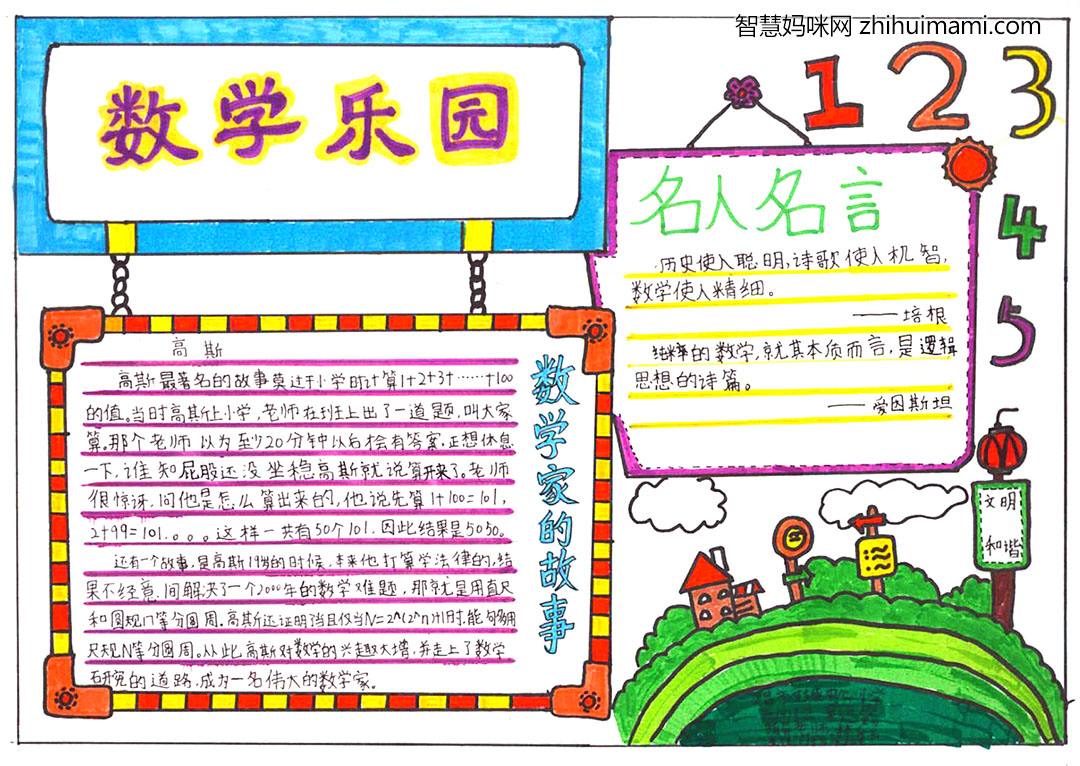 智慧妈咪网 zhihuimami.com
数学乐园
1 2 3
4
5
名人名言
历史使人聪明,诗歌使人机智,
数学使人精细。
——培根
纯粹的数学,就其本质而言,是逻辑
思想的诗篇。
——爱因斯坦
高斯
高斯最著名的故事莫过于小学时计算1+2+3+……+100
的值。当时高斯上小学,老师在班上出了一道题,叫大家
算。那个老师以为至少20分钟以后才会有答案,正想休息
一下,谁知屁股还没坐稳高斯就说算出来了。老师
很惊讶,问他是怎么算出来的,他说先算1+100=101,
2+99=101.。。。这样一共有50个101.因此结果是5050。
还有一个故事,是高斯19岁的时候,本来他打算学法律的,结
果不经意间解决了一个2000年的数学难题,那就是用直尺
和圆规17等分圆周。高斯还证明了当且仅当N=2^(2^n)+1时,能够用
尺规N等分圆周。从此,高斯对数学的兴趣大增,并走上了数学
研究的道路,成为一名伟大的数学家。
数学家的故事
文明
和谐